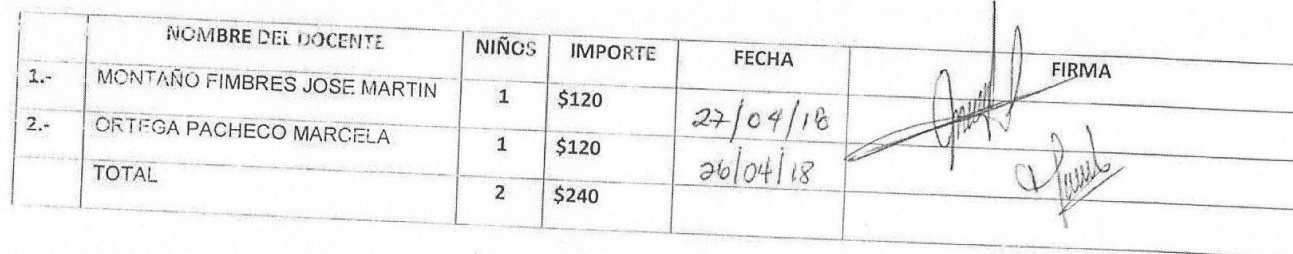 NOMBRE DEL DOCENTE NIÑOS IMPORTE FECHA FIRMA
1.- MONTAÑO FIMBRES JOSE MARTIN 1 $120 27/04/18
2.- ORTEGA PACHECO MARCELA 1 $120 26/04/18
TOTAL 2 $240